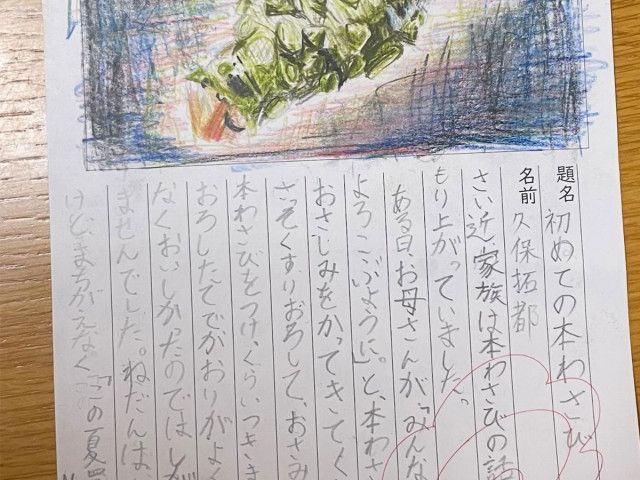 題名 初めての本わさび
名前 久保拓都
さい近、家族は本わさびの話
もり上がっていました。
ある日、お母さんが、「みんな
よろこぶように。」と、本わさ
おさしみをかってきてく
さっそくすりおろして、おさみ
本わさびをつけ、くらいつきま
おろしたてでがおりがよく
なくおいしかったのではしが
ませんでした。ねだんは
けど、まちがえなく「この夏